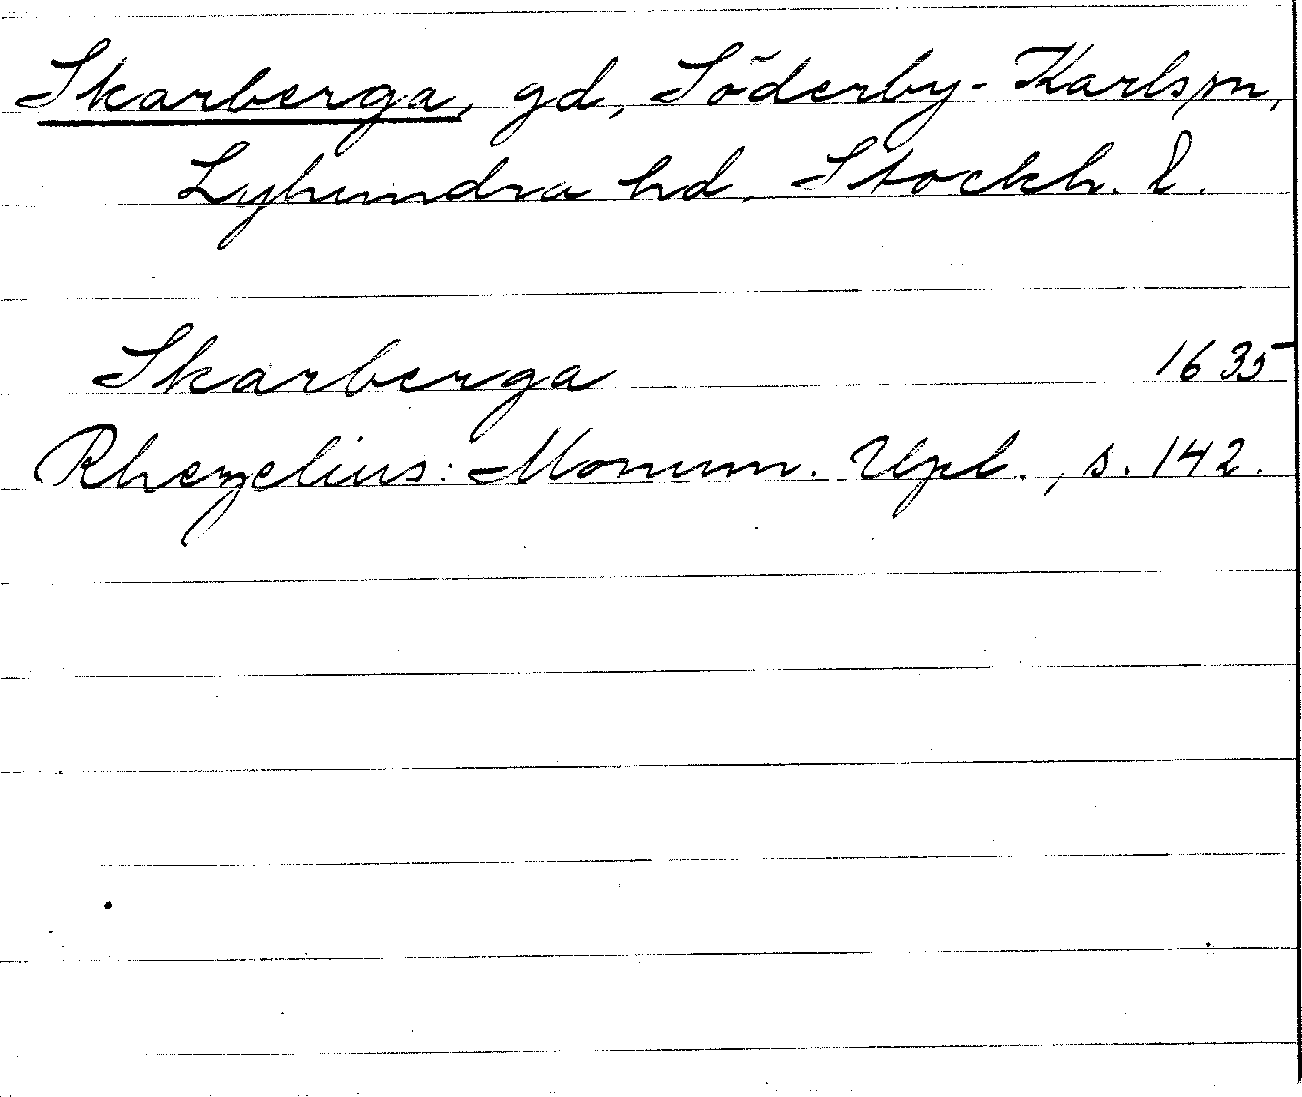 Skarberga, gd, Söderby-Karls sn,
Lyhundra hd, Stockh. l.
Skarberga 1635
Rhezelius: Monum. Upl., s. 142.